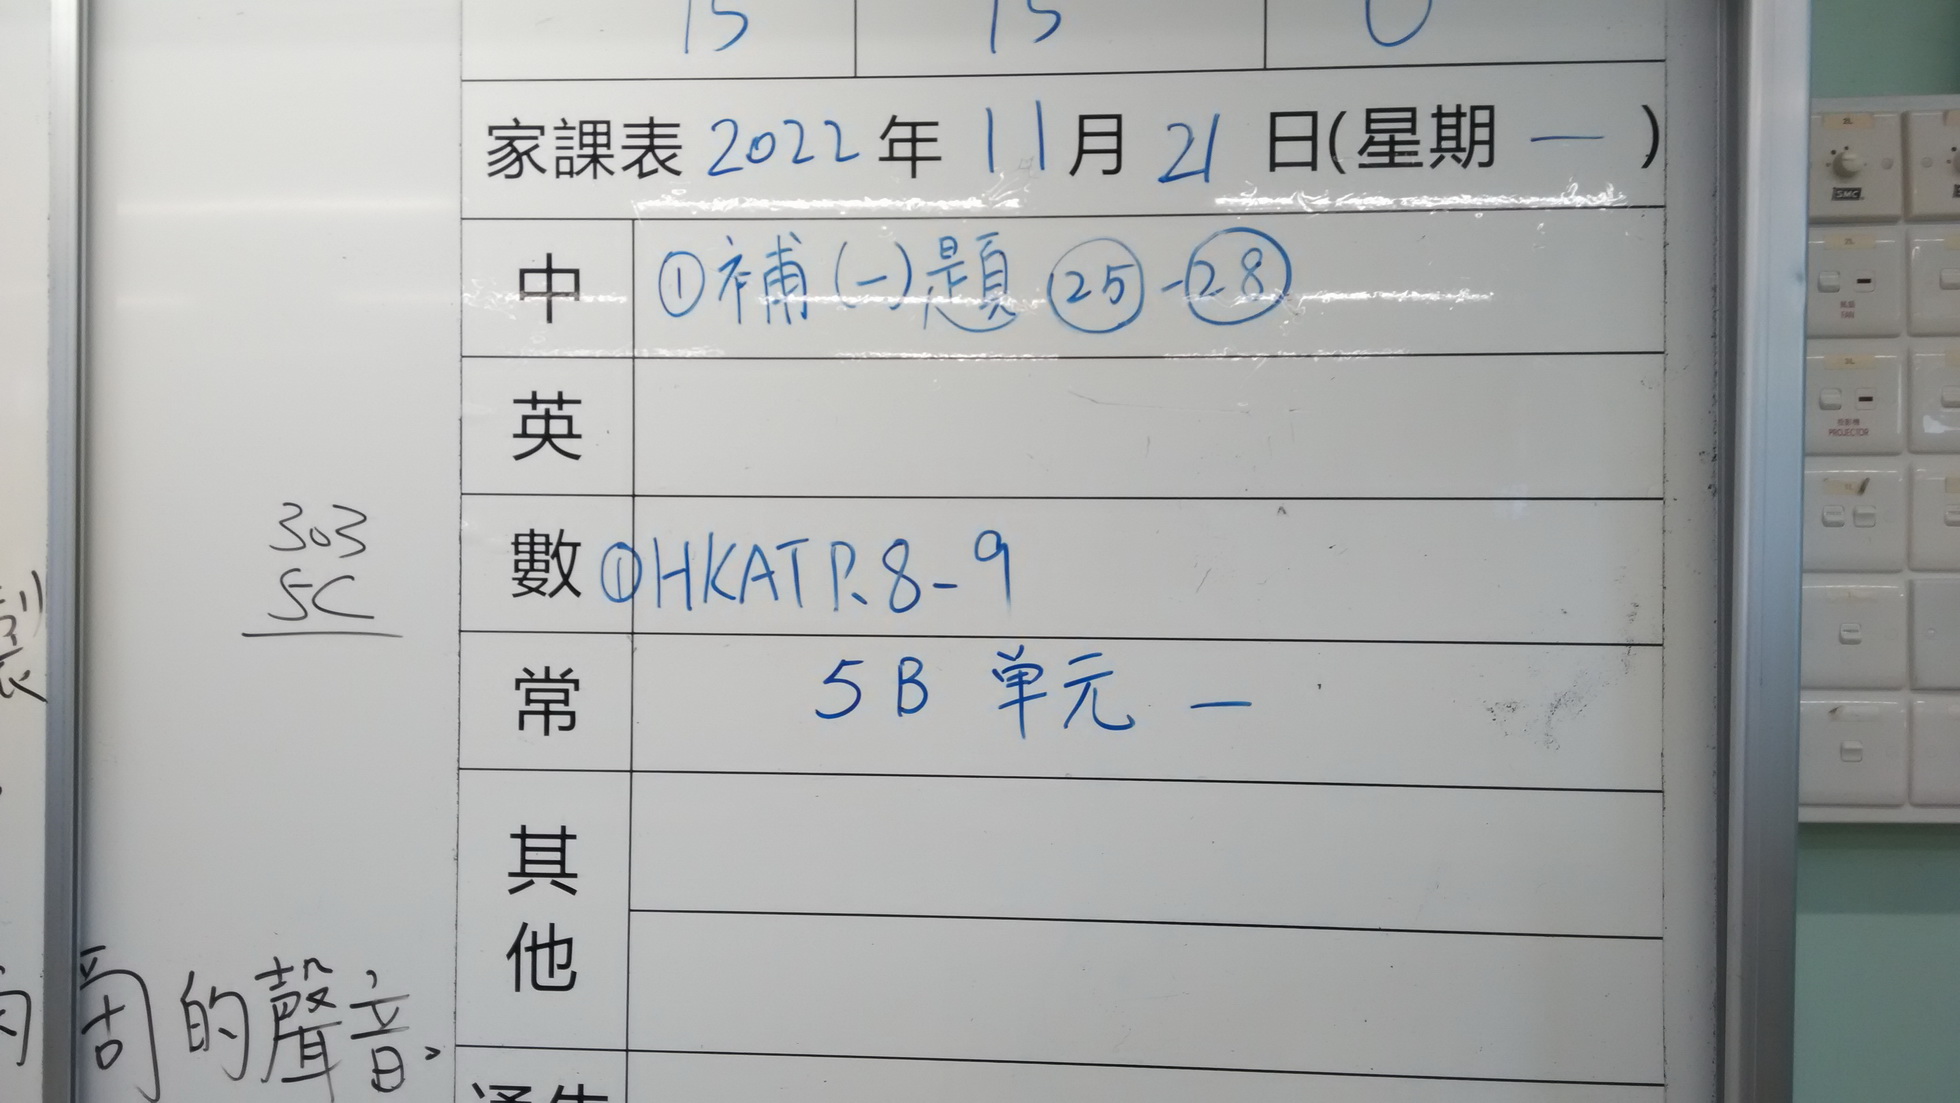 15 15 0
家課表 2022 年 11 月 21 日(星期 一 )
中 ①補(一)題 ㉕-㉘
英
數 ①HKAT P.8-9
常 5B 单元 一
其
他
303
5C
的聲音
FAN
PROJECTOR
SMC